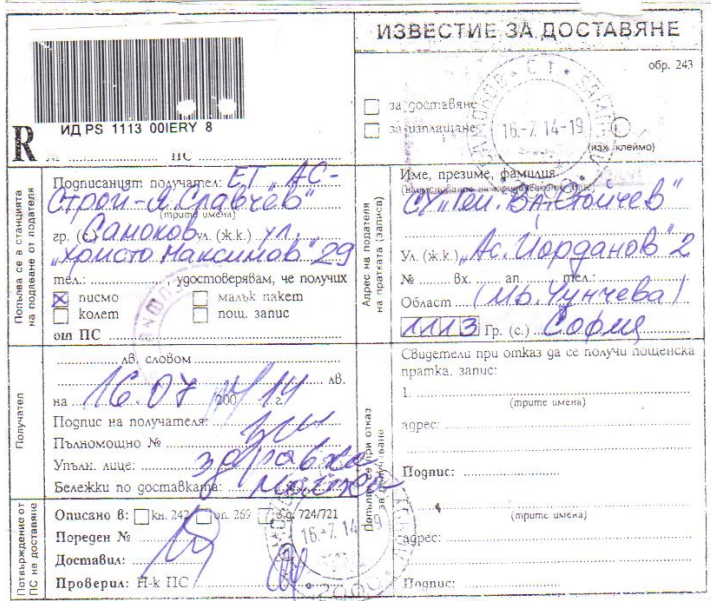 ИЗВЕСТИЕ ЗА ДОСТАВЯНЕ
обр. 243
за доставяне
за изплащане
16.-7.14-19
(изх. клеймо)
ИД PS 1113 00IERY 8
R
№ ПС
Попълва се в станцията на подаване от подателя
Подписаният получател: ЕТ "АС-
Строй-Я. Славчев"
(трите имена)
гр. (с.) Самоков ул. (ж.к.) ул.
"Христо Максимов" 29
тел.: , удостоверявам, че получих
писмо малък пакет
колет пощ. запис
от ПС
Адрес на подателя на пратката (записа)
Име, презиме, фамилия
СУ "Ген. Вл. Стойчев"
Ул. (ж.к.) "Ас. Йорданов" 2
№ вх. ап. тел.:
Област (Мб. Чунчева)
1113 Гр. (с.) София
Получател
лв. словом
лв.
на 16.07 200 14 г.
Подпис на получателя:
Пълномощно №
Упълн. лице: здравка
Бележки по доставката: майка
Попълва се при отказ за получаване
Свидетели при отказ да се получи пощенска
пратка, запис:
1.
(трите имена)
адрес:
Подпис:
(трите имена)
адрес:
Подпис:
Потвърждение от ПС на доставяне
Описано в: кн. 242 оп. 269 обр. 724/721
Пореден №
Доставил:
Проверил: Н-к ПС
16.-7.14-19